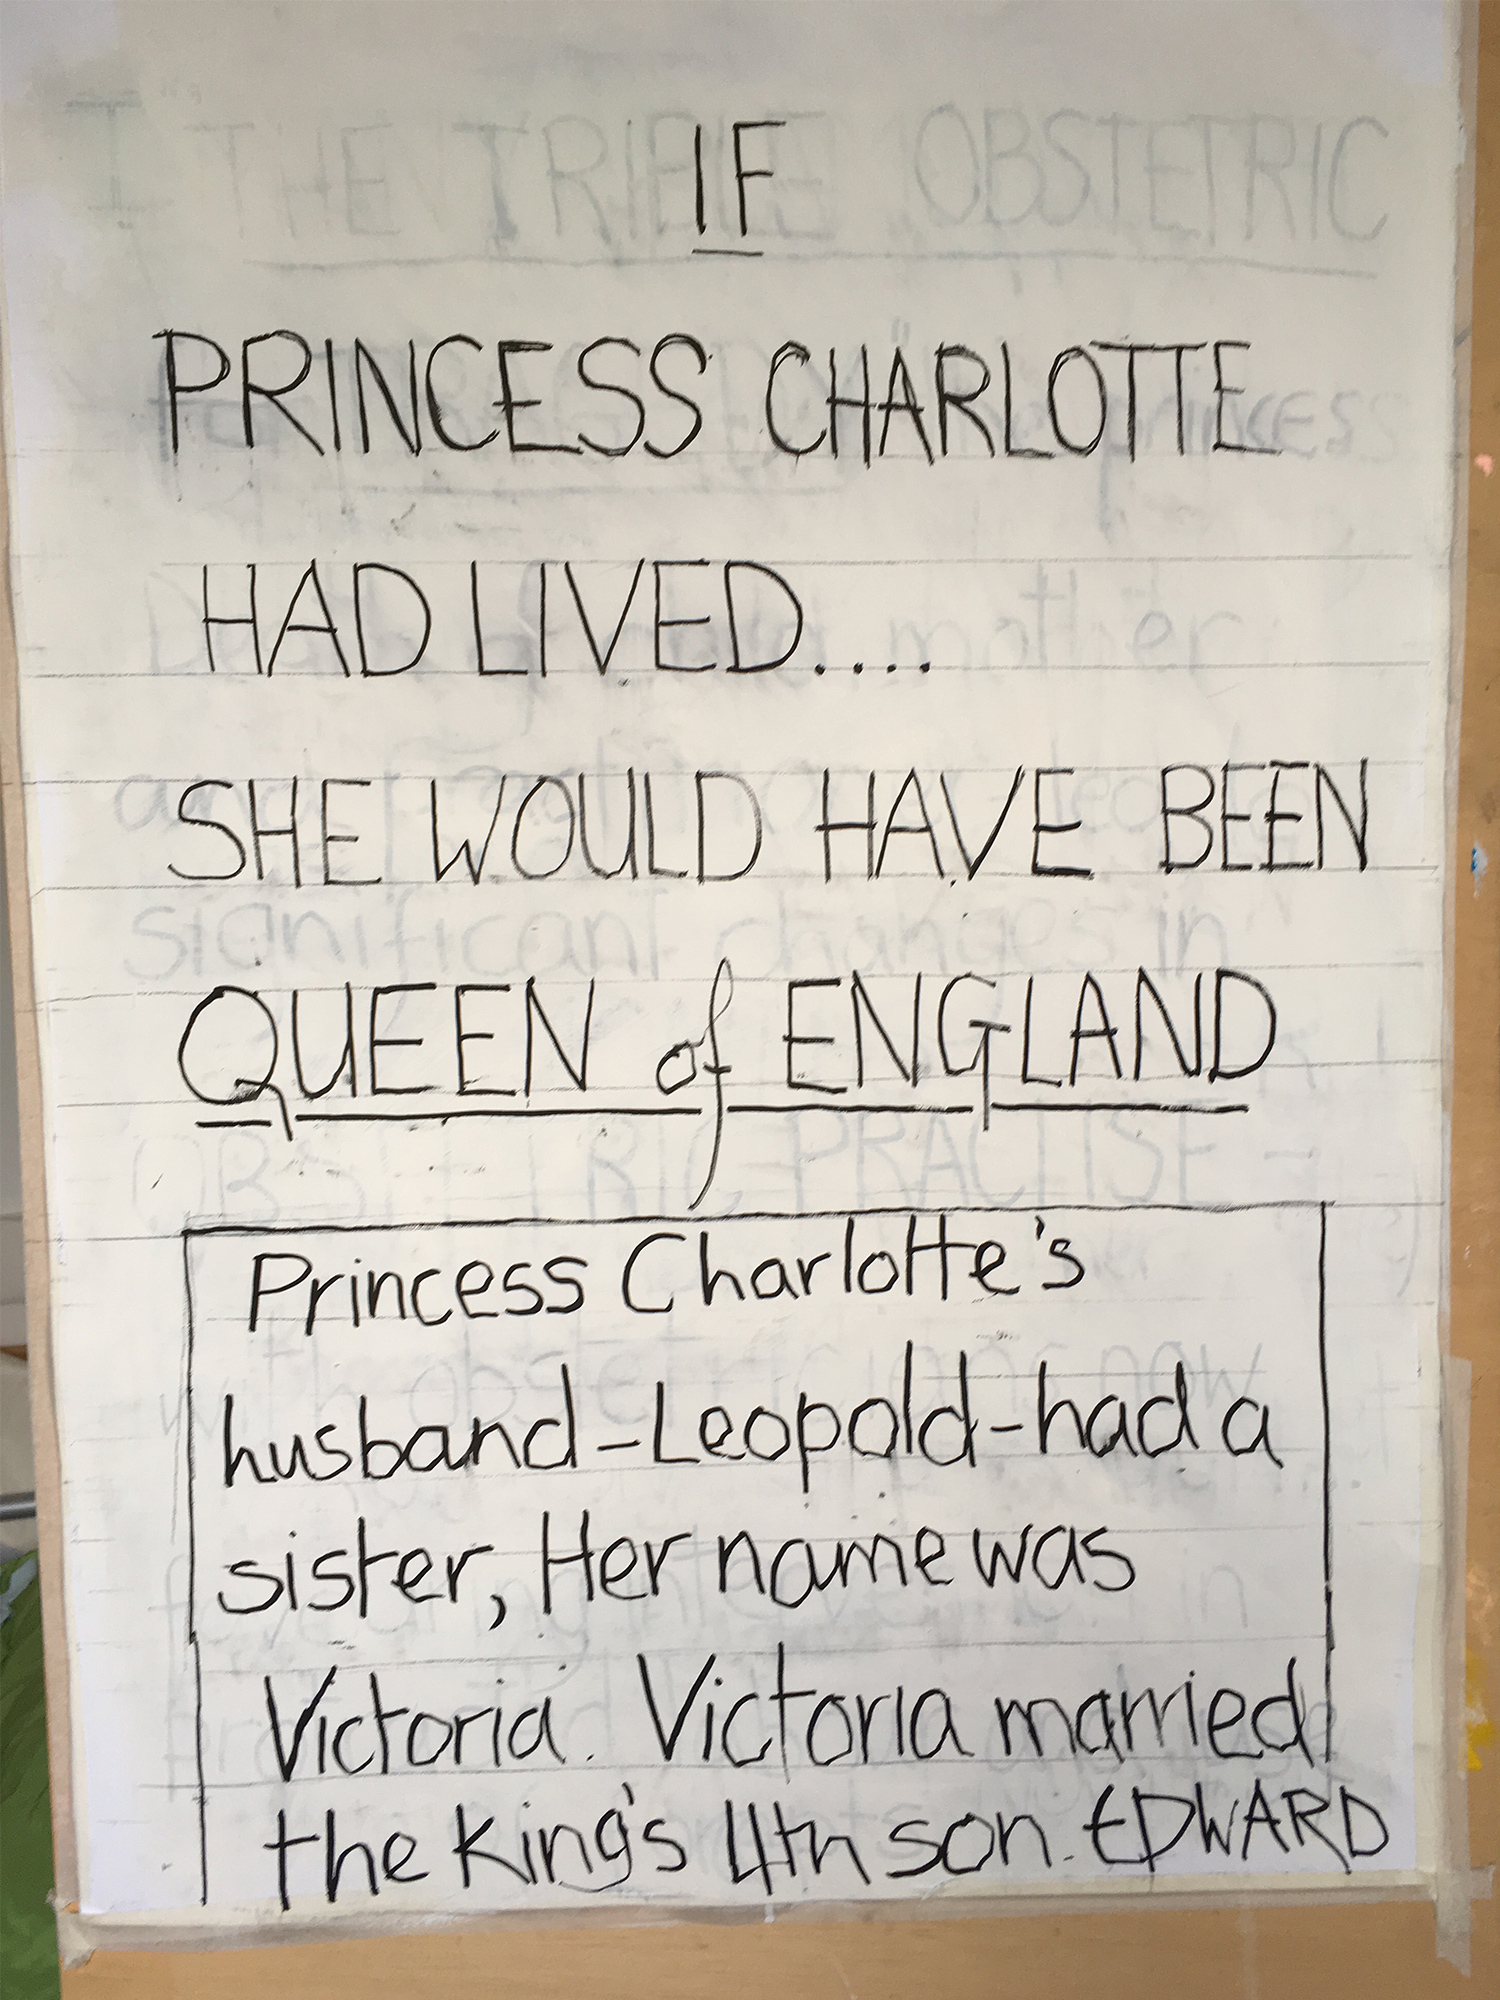 IF
PRINCESS CHARLOTTE
HAD LIVED....
SHE WOULD HAVE BEEN
QUEEN of ENGLAND
Princess Charlotte's
husband-Leopold-had a
sister, Her name was
Victoria. Victoria married
the King's 4th son. EDWARD